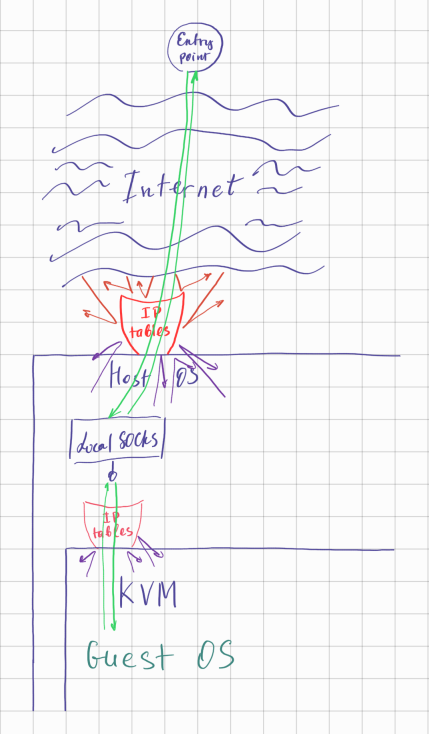 Entry
point
Internet
IP
tables
Host OS
Local socks
IP
tables
KVM
Guest OS